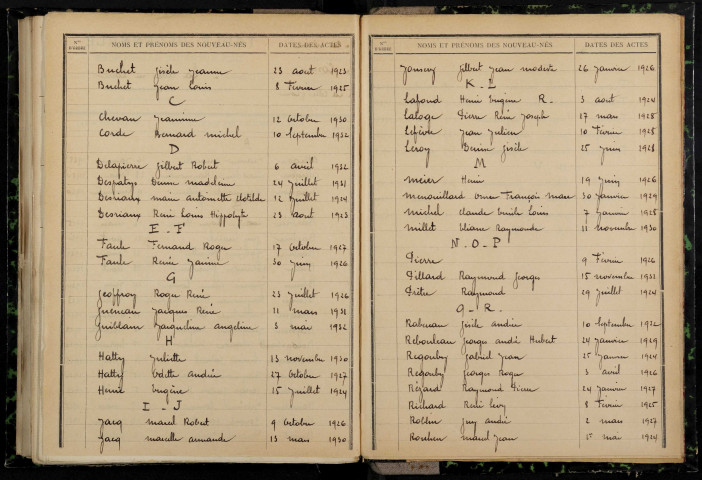 Nos D'ORDRE NOMS ET PRÉNOMS DES NOUVEAU-NÉS DATES DES ACTES
Buchet Gisèle Jeanne 23 aout 1923
Buchet Jean Louis 8 Février 1925
C
Chevau Jeannine 12 Octobre 1930
Corde Bernard Michel 10 Septembre 1932
D
Delapierre Gilbert Robert 6 avril 1932
Despatys Denise Madeleine 24 Juillet 1931
Desriaux Marie Antoinette Clotilde 12 Juillet 1924
Desriaux René Louis Hippolyte 23 aout 1923
E - F
Faule Fernand Roger 17 Octobre 1927
Faule Renée Janine 30 Juin 1926
G
Geoffroy Roger René 23 Juillet 1926
Gueneau Jacques René 11 mars 1931
Guiblain Jacqueline Angeline 3 mai 1932
H
Hatty Juliette 13 novembre 1930
Hatty Odette Andrée 27 Octobre 1927
Henri Eugène 15 Juillet 1924
I - J
Jacq Marcel Robert 9 Octobre 1926
Jacq Marcelle Armande 13 Mars 1930
Nos D'ORDRE NOMS ET PRÉNOMS DES NOUVEAU-NÉS DATES DES ACTES
Gilbert Jean Modeste 26 Janvier 1926
K - L
Lafond Henri Eugène R. 3 aout 1924
Laloge Pierre René Joseph 17 mars 1928
Lefèvre Jean Julien 10 Février 1928
Leroy Denise Gisèle 25 Juin 1928
M
Meier Henri 19 Juin 1926
Menouillard François Marie 30 Janvier 1929
Michel Claude Emile Louis 7 Janvier 1925
Millet Eliane Raymonde 11 novembre 1930
N. O. P
Pierre 9 Février 1926
Pillard Raymond Georges 15 novembre 1931
Prêtre Raymond 29 Juillet 1924
Q - R.
Rabueau Gisèle Andrée 10 Septembre 1932
Rebouleau Georges André Hubert 24 Janvier 1929
Regoudy Gabriel Jean 25 Janvier 1924
Regoudy Georges Roger 3 avril 1926
Régard Raymond Pierre 24 Janvier 1927
Richard René Lévy 8 Février 1925
Roblin Guy André 2 mars 1927
Marcel Jean 1r mai 1924